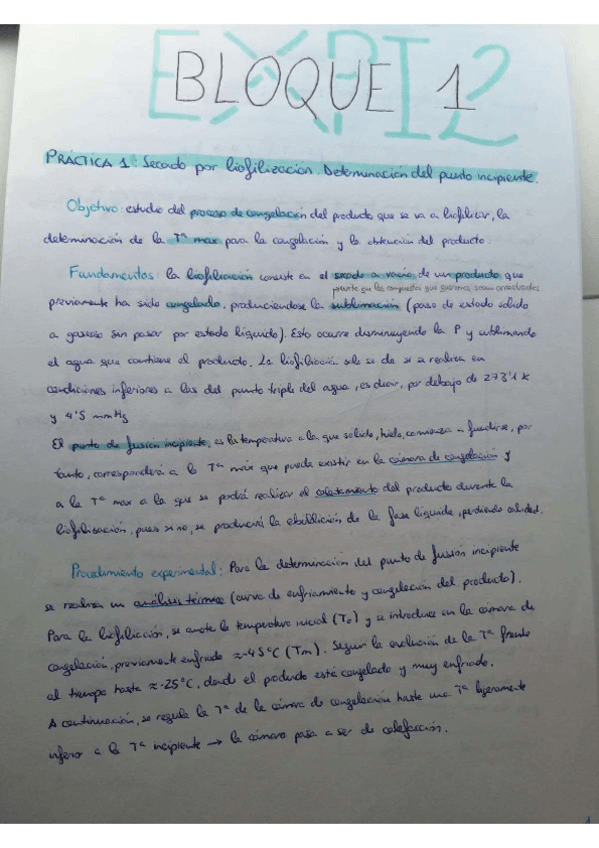 EXPI2
BLOQUE 1
PRÁCTICA 1: Secado por liofilización. Determinación del punto incipiente.
Objetivo: estudio del proceso de congelación del producto que se va a liofilizar, la
determinación de la Tª max para la congelación y la obtención del producto.
Fundamentos: la liofilización consiste en el secado a vacío de un producto que
puesto que los compuestos que queremos sean
previamente ha sido congelado, produciendose la sublimación (paso de estado sólido
a gaseoso sin pasar por estado líquido). Esto ocurre disminuyendo la P y sublimando
el agua que contiene el producto. La liofilización solo se da si se realiza en
condiciones inferiores a las del punto triple del agua, es decir, por debajo de 273'1 K
y 4'5 mmHg
El punto de fusión incipiente, es la temperatura a la que solido, hielo, comienza a fundirse, por
tanto, corresponderá a la Tª máx que puede existir en la cámara de congelación y
a la Tª max a la que se podrá realizar el calentamiento del producto durante la
liofilización, pues si no, se producirá la ebullición de la fase líquida, perdiendo calidad.
Procedimiento experimental: Para la determinación del punto de fusión incipiente
se realiza un análisis térmico (curva de enfriamiento y congelación del producto).
Para la liofilización, se anota la temperatura inicial (T₀) y se introduce en la cámara de
congelación, previamente enfriada ≈-45°C (Tm). Seguir la evolución de la Tª frente
al tiempo hasta ≈-25°C, donde el producto está congelado y muy enfriado.
A continuación, se regula la Tª de la cámara de congelación hasta una Tª ligeramente
inferior a la Tª incipiente → la cámara pasa a ser de calefacción.